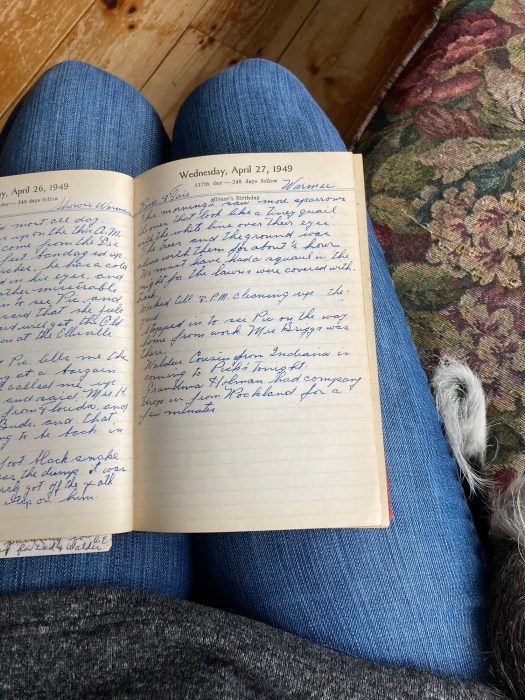 y, April 26, 1949
days follow
Shower Warmer
d most all day
up on the this A.M.
came from the Pic
feet bandaged up
he has a cold
d in his eyes, and
miserable
in to see Pic, and
said that she felt
and will get the Old
on at the Ellisville
Pic tells me the
at a bargain
called me up
and said Mrs. H.
from Florida, and
Buds. and that
ng to be back in
foot black snake
ear the dump it was
got off the path
step on him.
for Dad & Walder
Wednesday, April 27, 1949
117th day — 248 days follow
Fair Warmer
Grant's Birthday
This morning I saw more sparrows
that look like a tiney quail
with the white line over their eyes
The trees and the ground was
alive with them for about ½ hour
We must have had a squall in the
night for the lawns were covered with
Worked till 8. P.M. cleaning up the
yard
Stopped in to see Pic on the way
home from work Mrs Briggs was
there.
Walder Cousin from Indiana is
coming to Pic's tonight.
Grandma & Holman had company
drop in from Rockland for a
few minutes